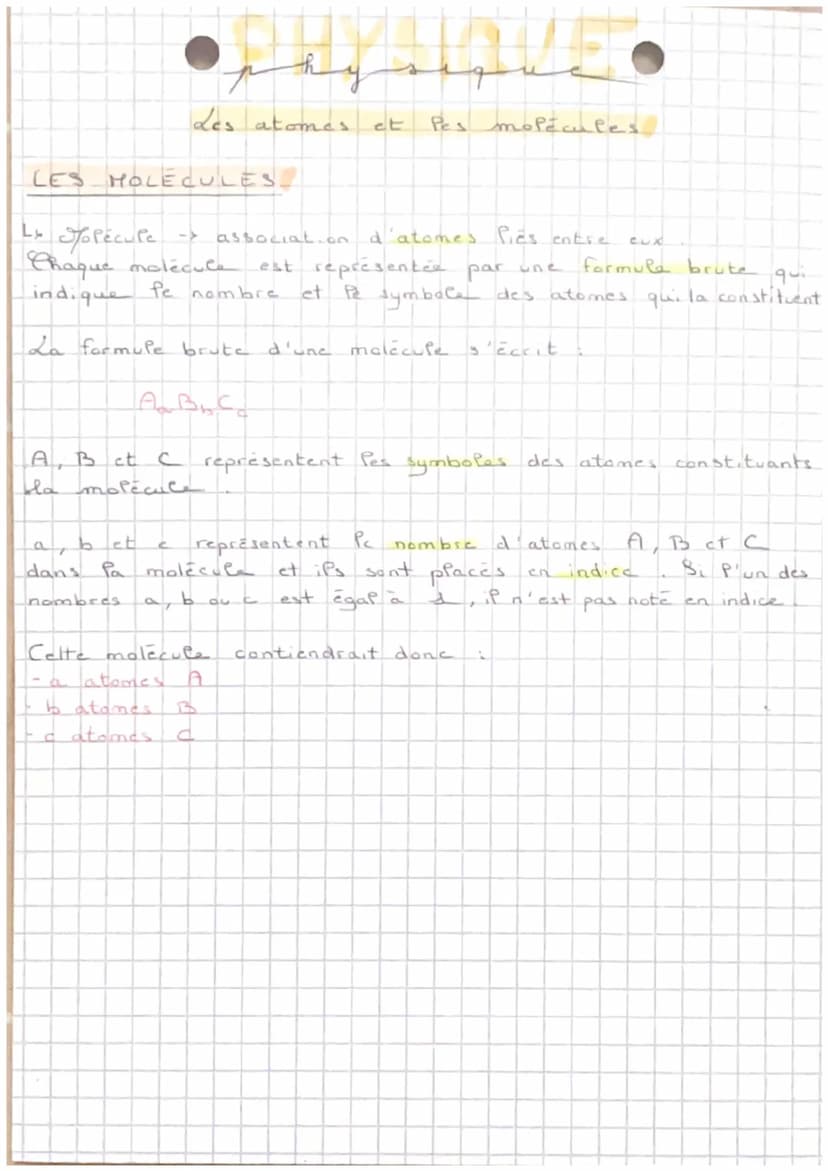 PHYSIQUE
physique
Les atomes et les molécules
LES MOLÉCULES
↳ Molécule -> association d'atomes liés entre eux.
Chaque molécule est représentée par une formule brute qui
indique le nombre et le symbole des atomes qui la constituent
La formule brute d'une molécule s'écrit :
AaBbCc
A, B et C représentent les symboles des atomes constituants
la molécule.
a, b et c représentent le nombre d'atomes A, B et C
dans la molécule et ils sont placés en indice. Si l'un des
nombres a, b ou c est égal à 1, il n'est pas noté en indice.
Cette molécule contiendrait donc :
- a atomes A
- b atomes B
- c atomes C